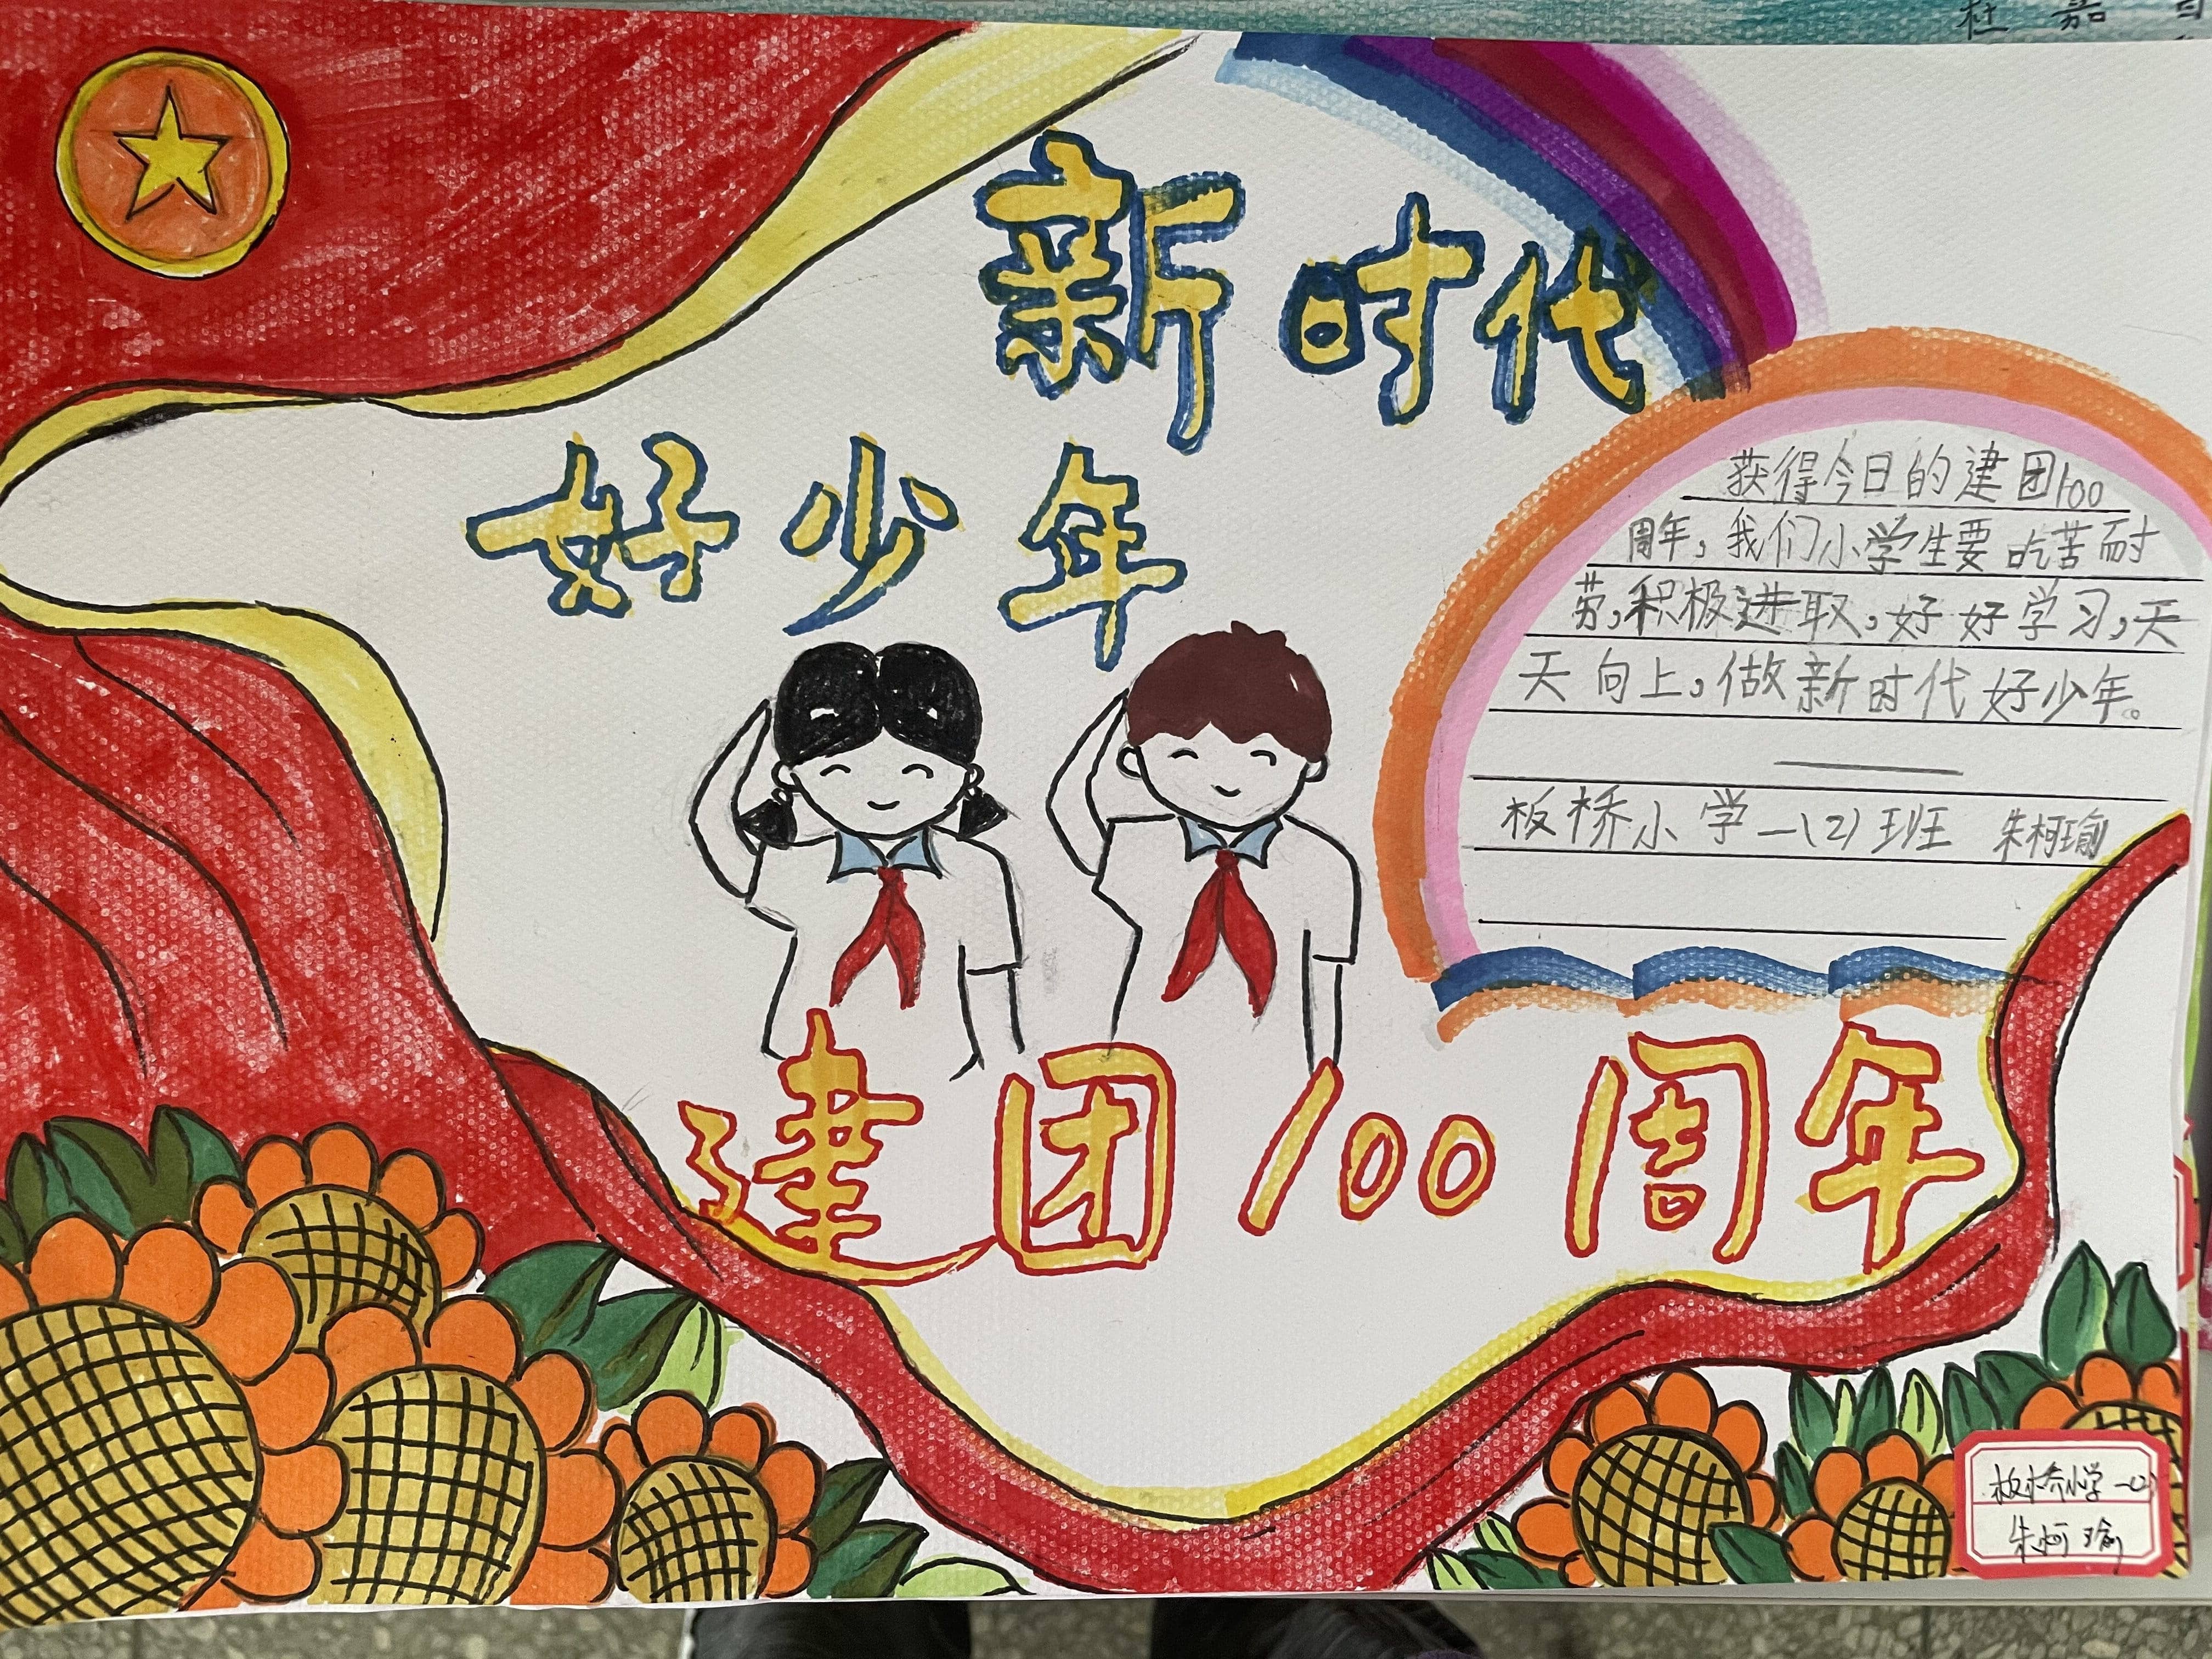 杜嘉
新时代
好少年
获得今日的建团100
周年，我们小学生要吃苦耐
劳，积极进取，好好学习，天
天向上，做新时代好少年。
板桥小学一(2)班 朱柯瑜
建团100周年
板桥小学一(2)
朱柯瑜